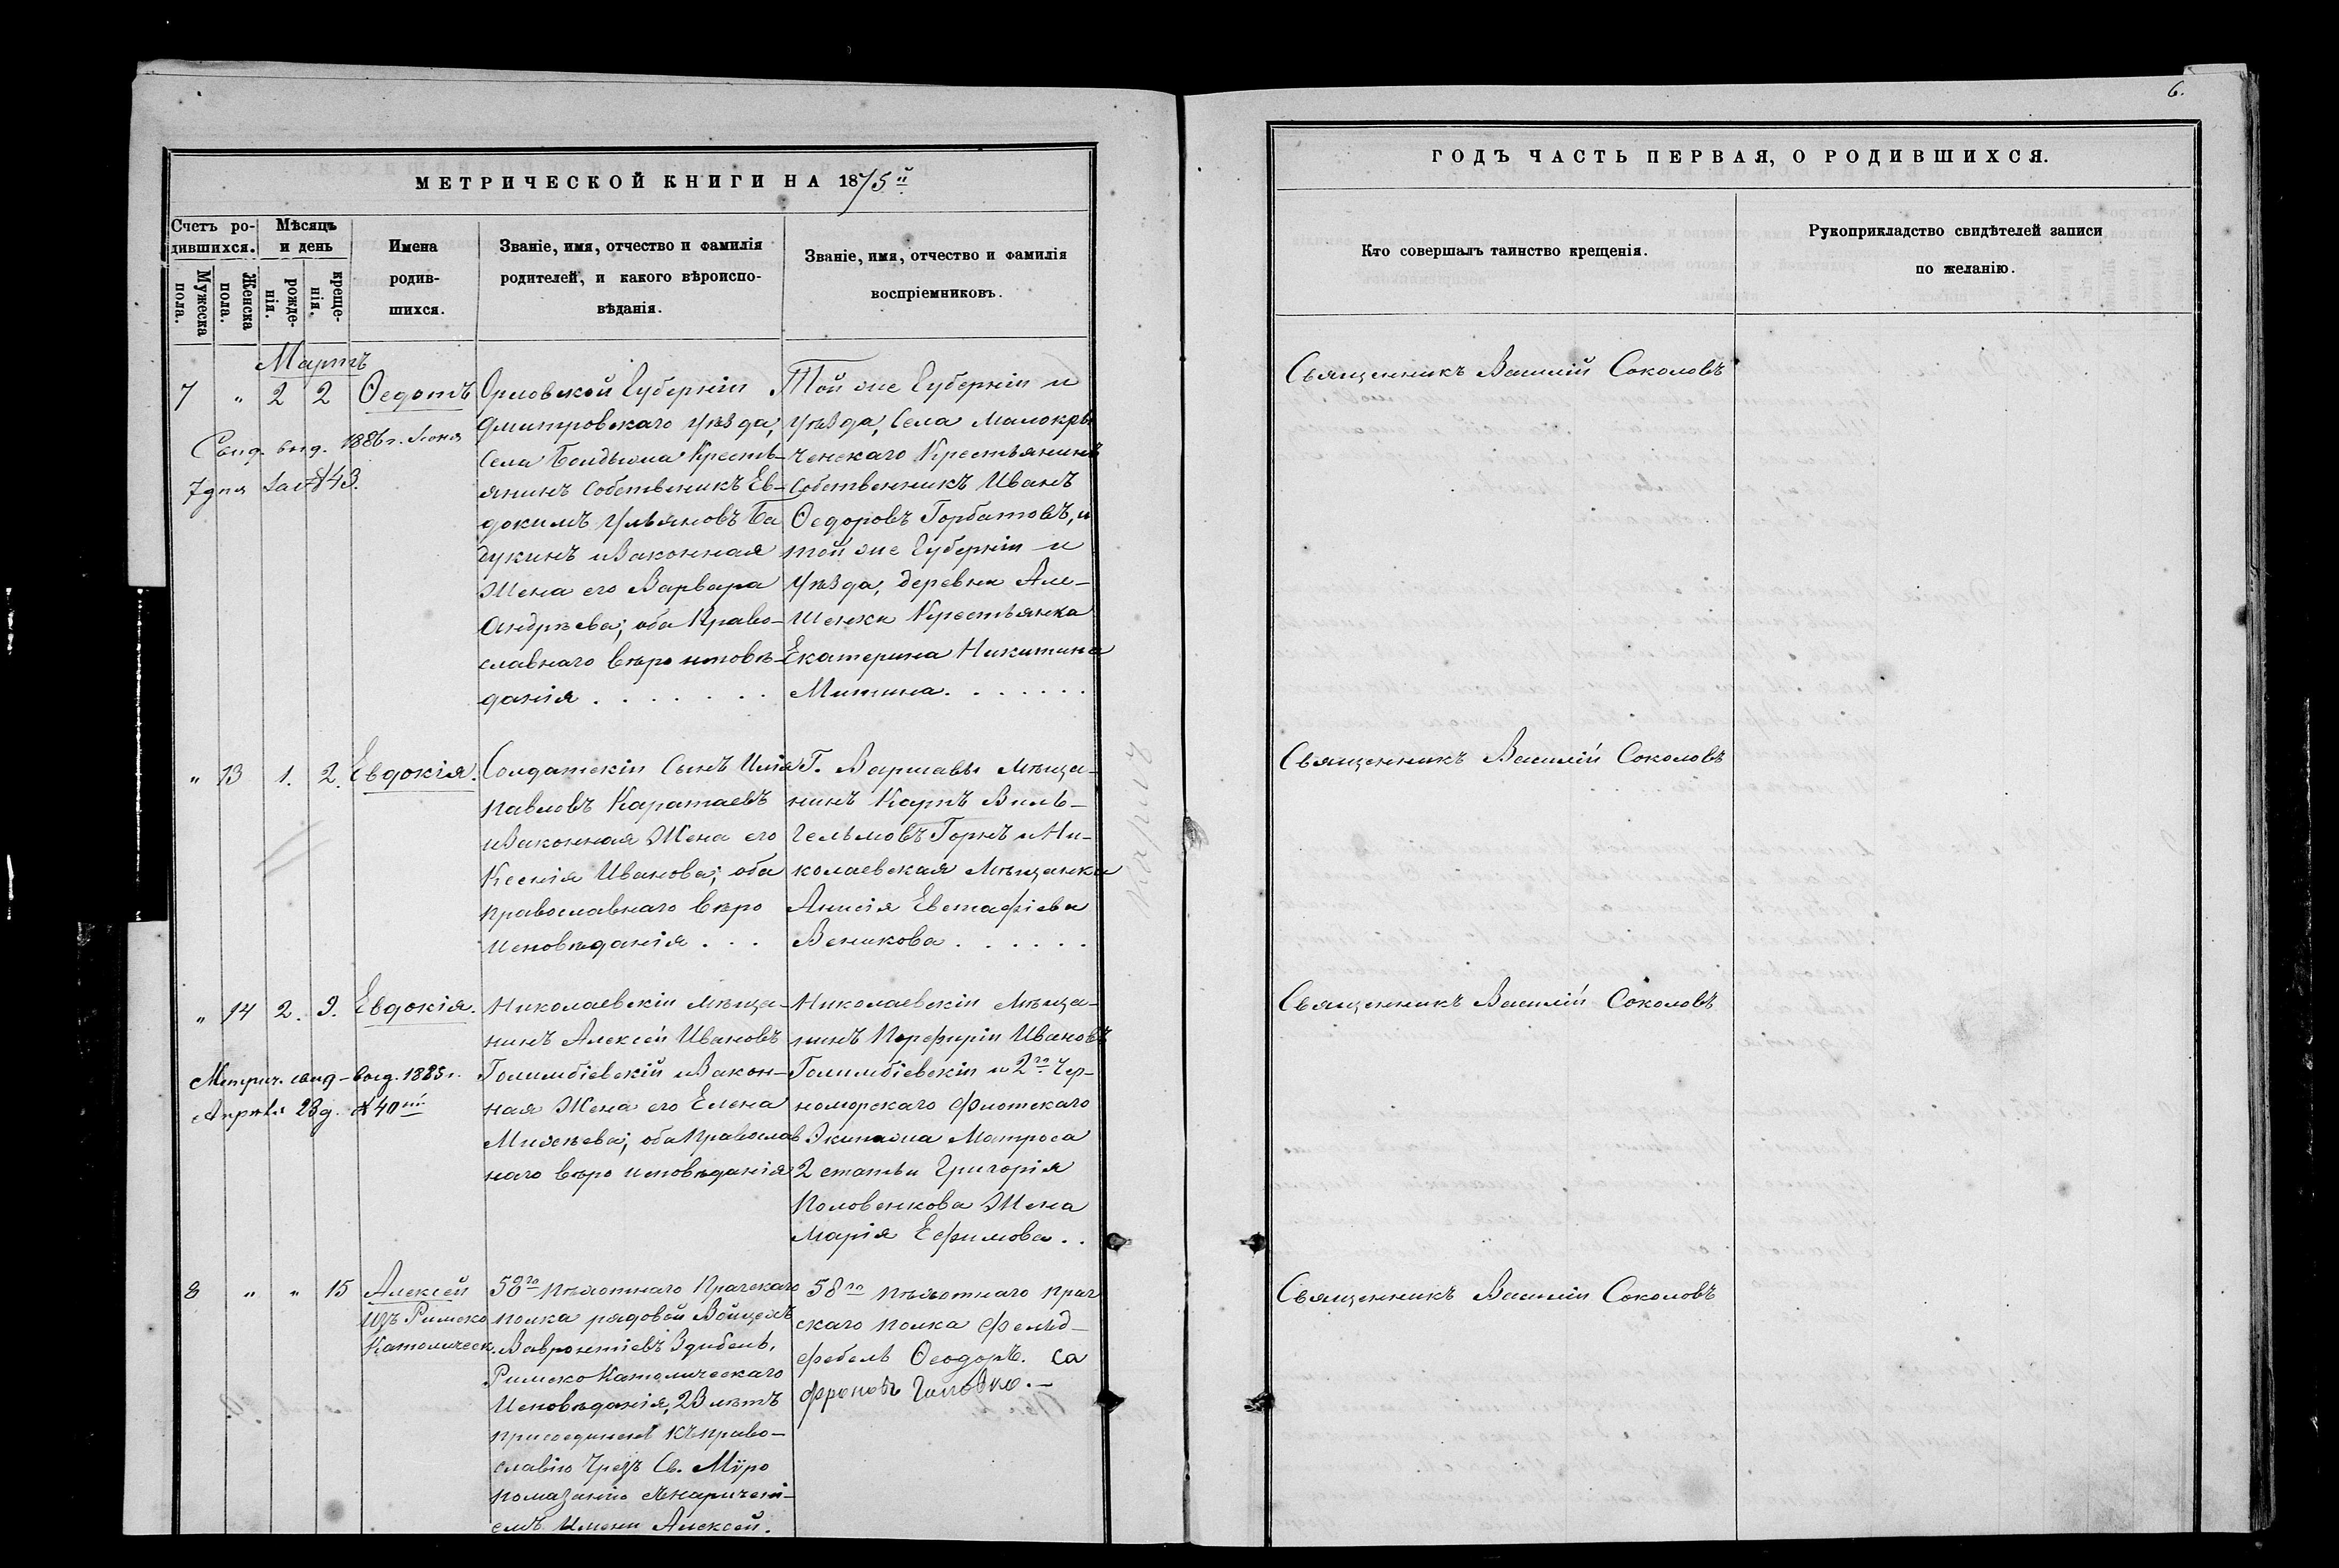 6.
МЕТРИЧЕСКОЙ КНИГИ НА 1875й
ГОДЪ ЧАСТЬ ПЕРВАЯ, О РОДИВШИХСЯ.
Счетъ родившихся.
Мужеска пола.
Женска пола.
Мѣсяцъ и день
рожденія.
крещенія.
Имена
родив-
шихся.
Званіе, имя, отчество и фамилія
родителей, и какого вѣроиспо-
вѣданія.
Званіе, имя, отчество и фамилія
воспріемниковъ.
Кто совершалъ таинство крещенія.
Рукоприкладство свидѣтелей записи
по желанію.
Мартъ
7 " 2 2 Ѳедотъ
Свид. выд. 1886 г. Іюня
7 дня за № 43.
Орловской Губерніи
Дмитровскаго Уѣзда,
Села Болдыжа Кресть-
янинъ Собственикъ Ев-
докимъ Ульяновъ Ба
дукинъ и Законная
Жена его Варвара
Андрѣева; оба Право-
славнаго вѣро исповѣ-
данія . . . . . . .
Той же Губерніи и
Уѣзда, Села Малокры
ченскаго Крестьянинъ
Собственникъ Иванъ
Ѳедоровъ Горбатовъ, и
той же Губерніи и
Уѣзда, деревни Але-
шенки Крестьянка
Екатерина Никитина
Митина. . . . . . .
Священникъ Василій Соколовъ
" 13 1. 2. Евдокія.
Солдатскій Сынъ Илія
Павловъ Каратаевъ
и Законная Жена его
Ксенія Иванова; оба
Православнаго вѣро
Исповѣданія . . .
Г. Варшавы Мѣща-
нинъ Карлъ Виль-
гельмовъ Горнъ и Ни-
колаевская Мѣщанка
Анисія Евстафіева
Веникова . . . . . .
Священникъ Василій Соколовъ
" 14 2. 9. Евдокія.
Метрич. свид-выд. 1885 г.
Апрѣля 23 д. № 40й
Николаевскій Мѣща-
нинъ Алексѣй Ивановъ
Голимбіевскій и Закон-
ная Жена его Елена
Моисѣева; оба Православ
наго вѣро исповѣданія
Николаевскій Мѣща-
нинъ Порфирій Ивановъ
Голимбіевскій и 2го Чер-
номорскаго Флотскаго
Экипажа Матроса
2 статьи Григорія
Половенкова Жена
Марія Ефимова . .
Священникъ Василій Соколовъ
8 " " 15 Алексѣй
изъ Римско
Католическ.
58го Пѣхотнаго Прагскаго
полка рядовой Войцехъ
Лаврентіевъ Здибель,
Римско Католическаго
Исповѣданія, 23 лѣтъ
присоединенъ къ право-
славію чрезъ Св. Мѵро
помазаніе съ нареченi-
емъ Имени Алексѣй.
58го пѣхотнаго праг
скаго полка Фельд-
фебель Ѳеодоръ. Са
фроновъ Головко. -
Священникъ Василій Соколовъ